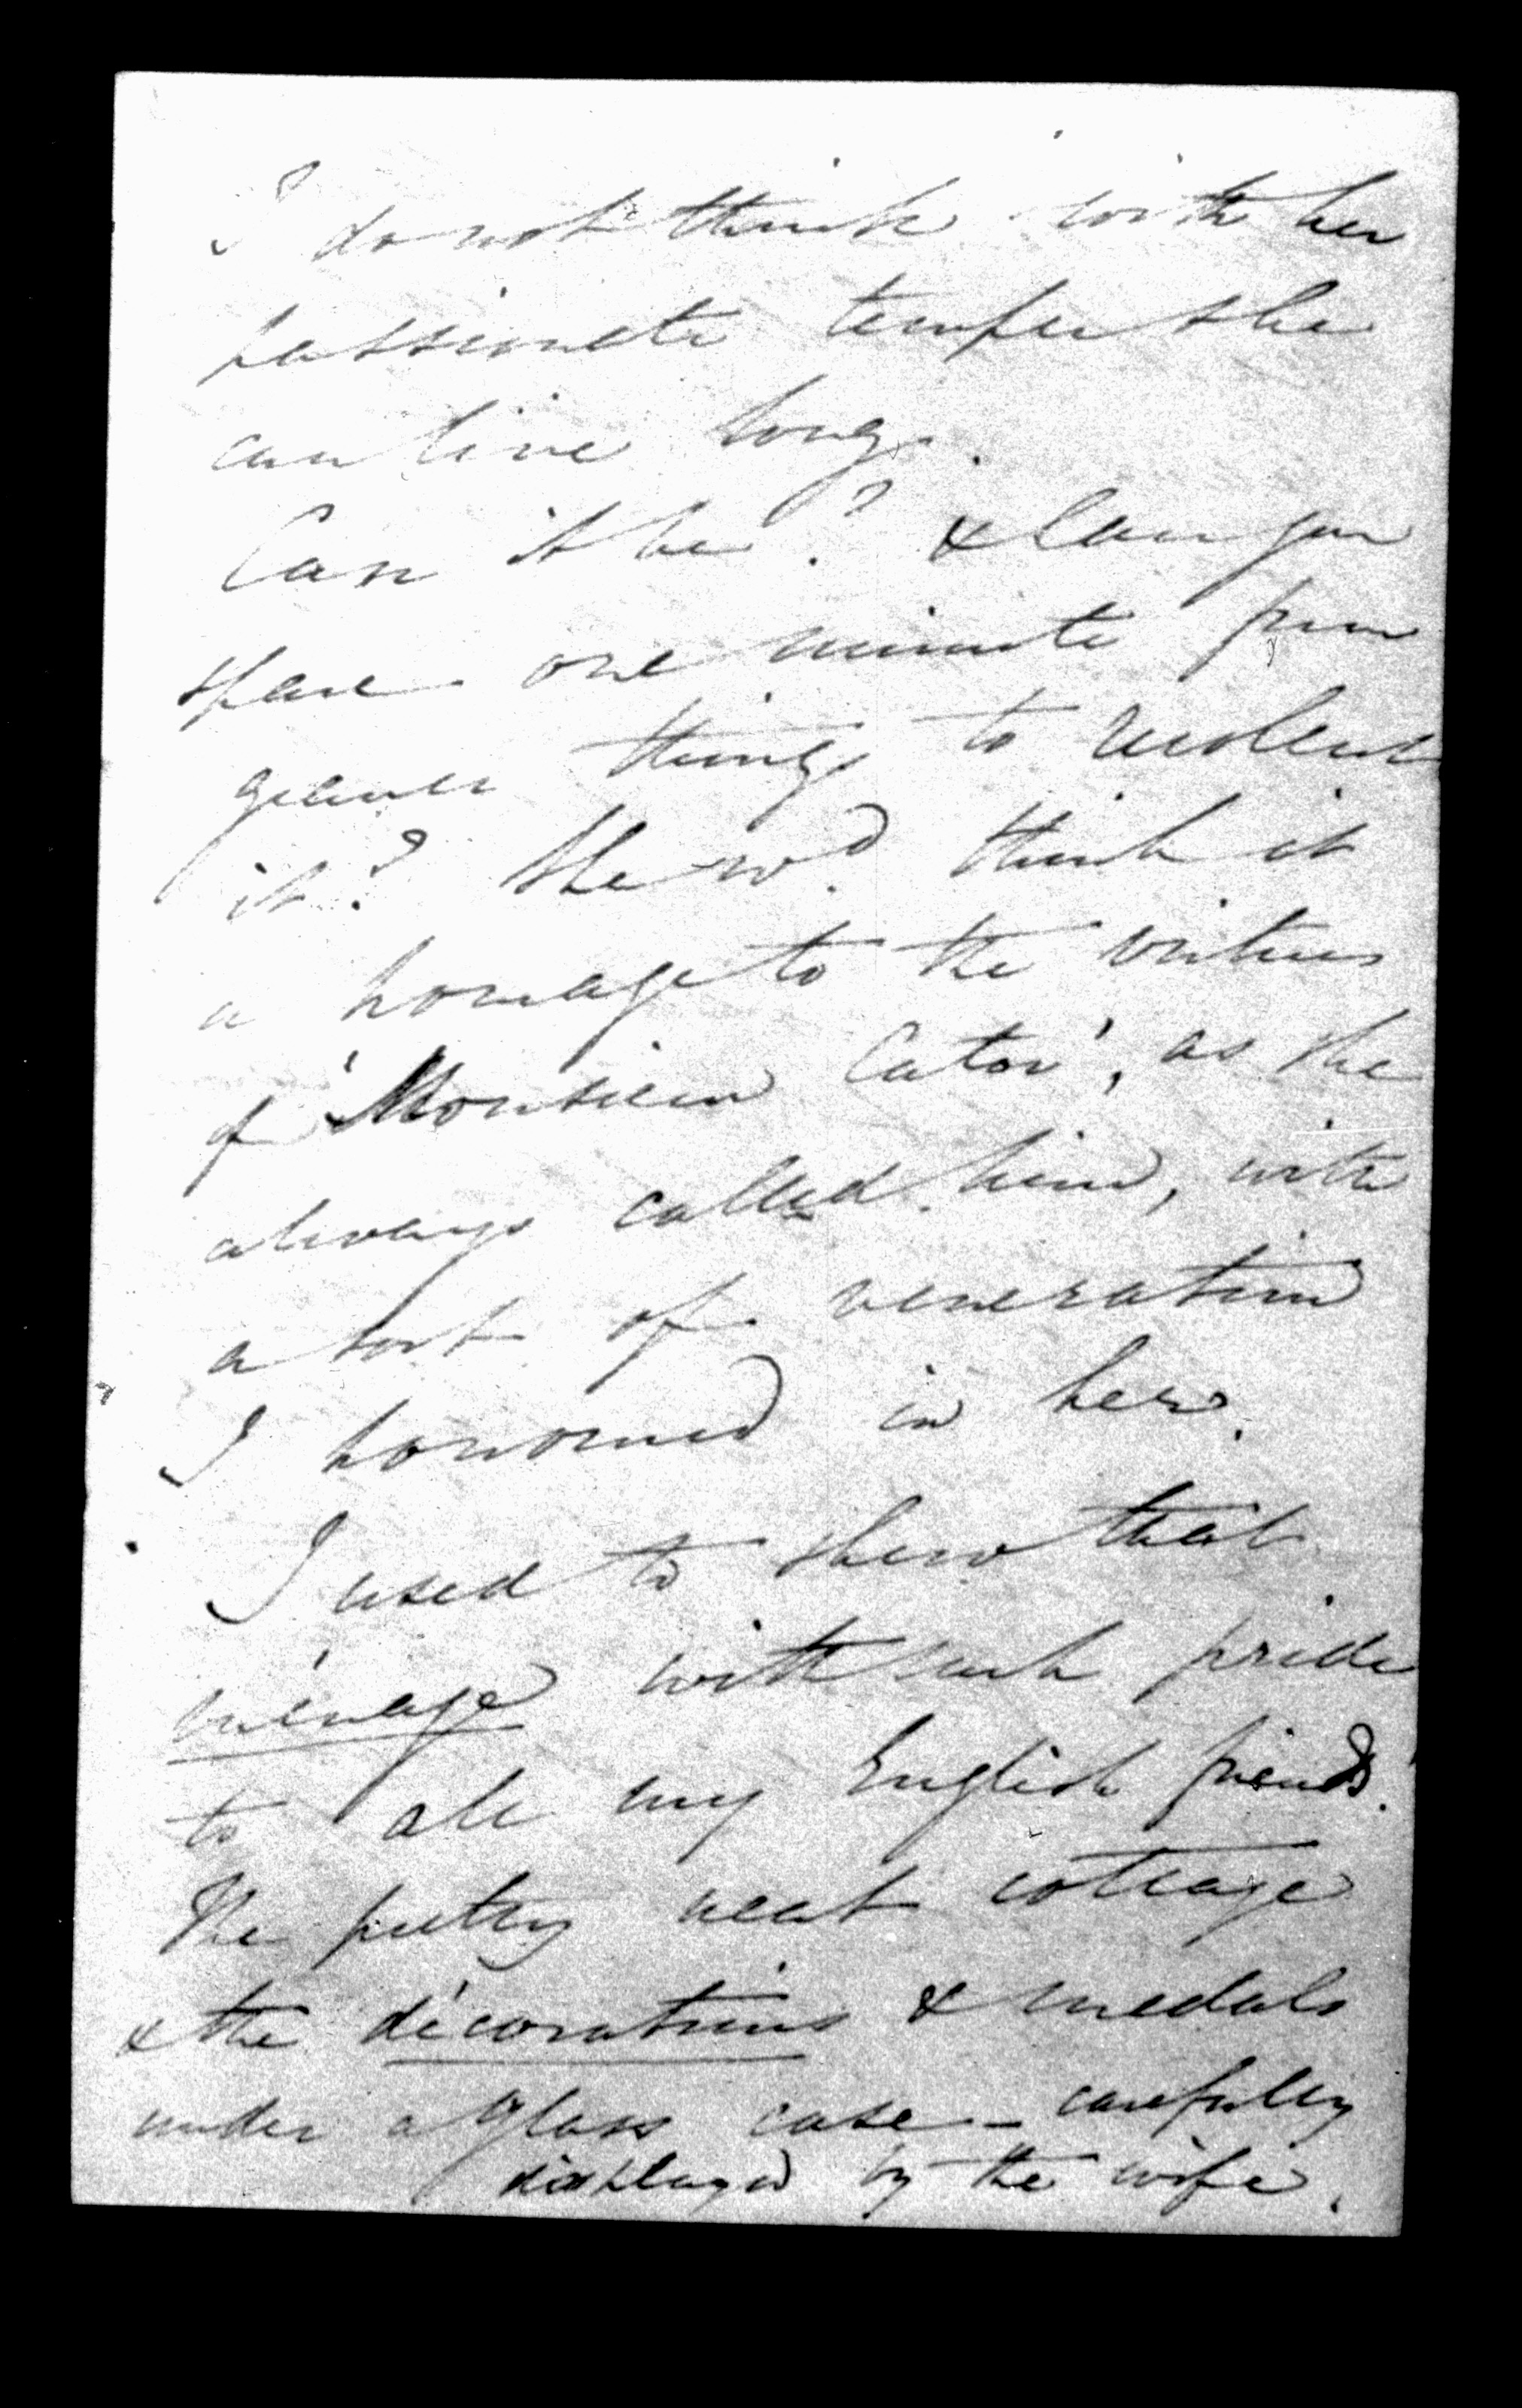 I do not think with her
passionate temper she
can live long.
Can it be? & can you
spare one minute from
graver things to
it? She wd think it
a homage to the virtues
of 'Monsieur Cator', as she
always called him, with
a sort of veneration
I honoured in her.
I used to shew that
ménage with such pride
to all my English friends.
The pretty neat cottage
& the décorations & medals
under a glass case - carefully
displayed by the wife.